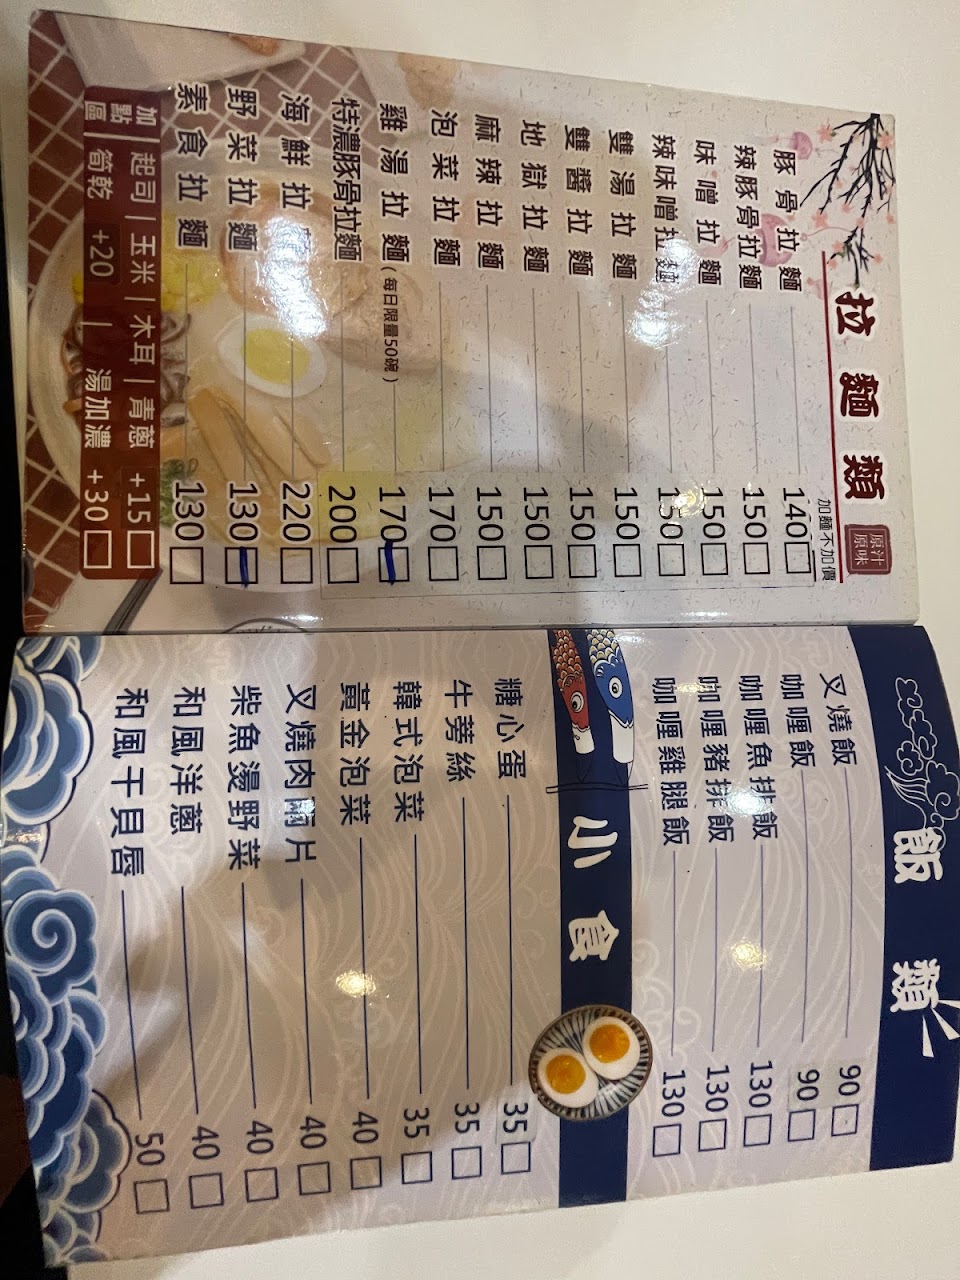 拉麵類
原汁原味
加麵不加價
豚骨拉麵 140
辣豚骨拉麵 150
味噌拉麵 150
辣味噌拉麵 150
雙湯拉麵 150
雙醬拉麵 150
地獄拉麵 150
麻辣拉麵 150
泡菜拉麵 170
雞湯拉麵(每日限量50碗) 170
特濃豚骨拉麵 200
海鮮拉麵 220
野菜拉麵 130
素食拉麵 130
加點區
起司|玉米|木耳|青蔥 +15
筍乾 +20 | 湯加濃 +30
飯類
叉燒飯 90
咖哩飯 90
咖哩魚排飯 130
咖哩豬排飯 130
咖哩雞腿飯 130
小食
糖心蛋 35
牛蒡絲 35
韓式泡菜 35
黃金泡菜 40
叉燒肉兩片 40
柴魚燙野菜 40
和風洋蔥 40
和風干貝唇 50